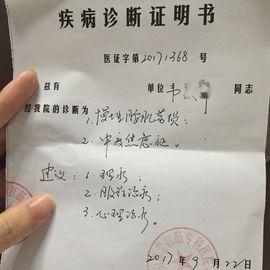 疾病诊断证明书
医证字第20171368号
兹有 单位韦 同志
经我院的诊断为
1.慢性腰肌劳损;
2.中度焦虑症.
建议:1.理疗;
2.服药治疗;
3.心理治疗.
2017年9月22日